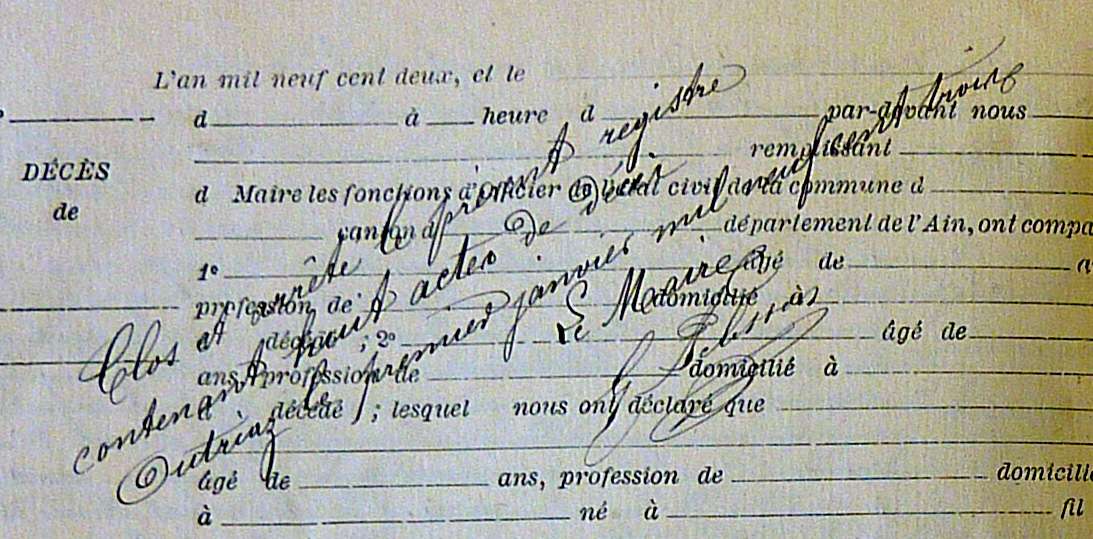 L'an mil neuf cent deux, et le
d à heure d par-devant nous
remplissant
DÉCÈS
de
d Maire les fonctions d'Officier de l'état civil de la commune d
canton d département de l'Ain, ont compa
1° âgé de a
profession de domicilié à
et décédé ; 2° âgé de
ans, profession de domicilié à
décédé ; lesquel nous ont déclaré que
âgé de ans, profession de domicilié
à né à fil
Clos et arrêté le présent registre
contenant huit actes De décès
Outriaz le premier janvier mil neuf cent trois
Le Maire